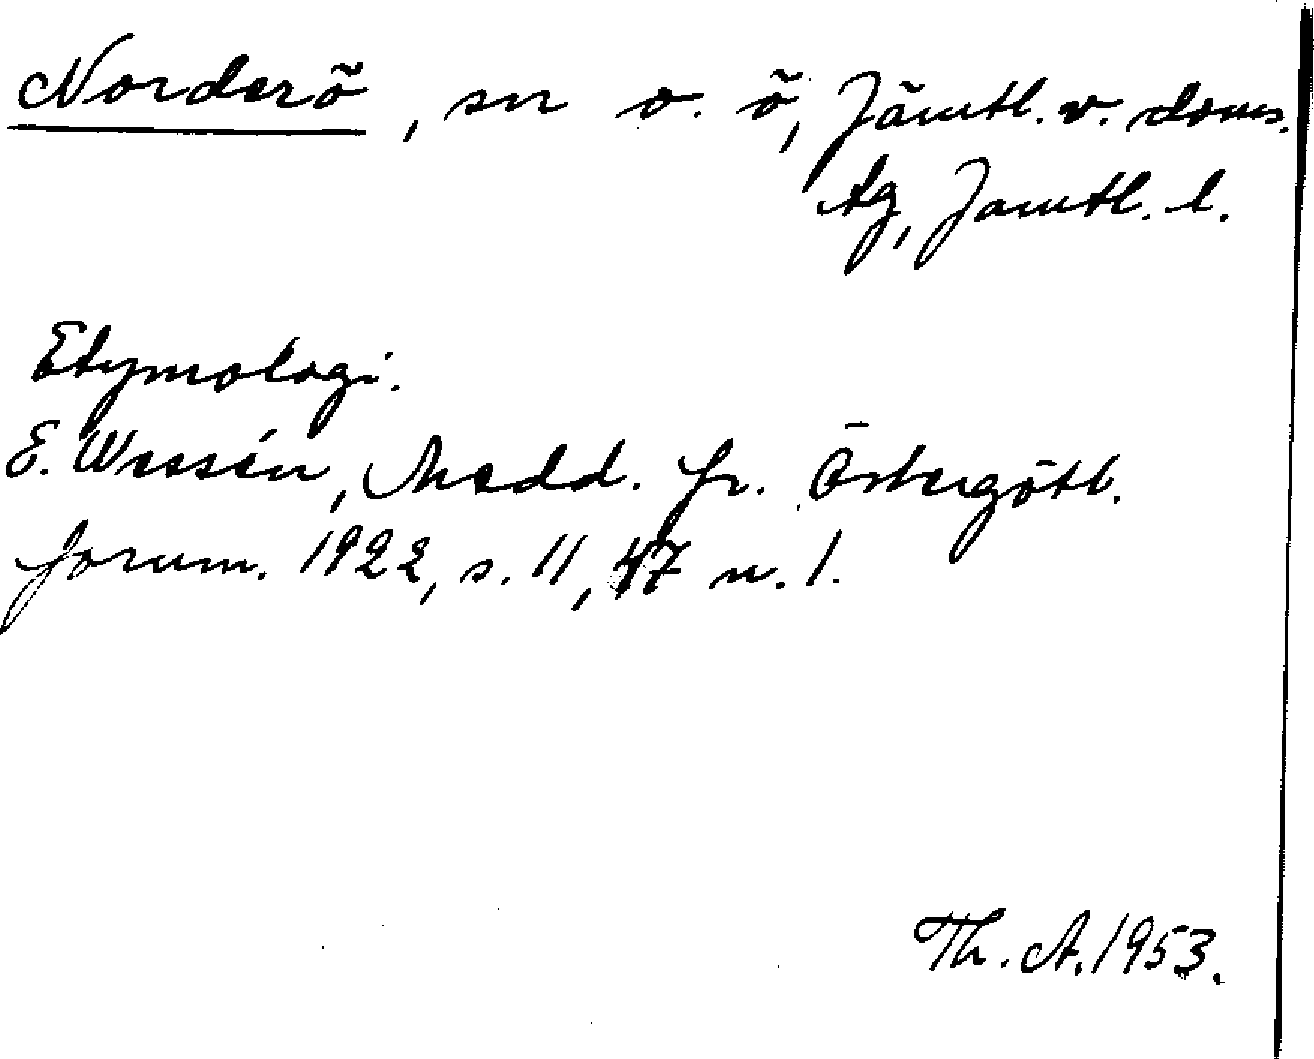 Norderö, sn o. ö, Jämtl. v. doms.
tg, Jämtl. l.
Etymologi.
E. Wessén, Medd. fr. Östergötl.
fornm. 1922, s. 11, 47 n. 1.
Th. A. 1953.